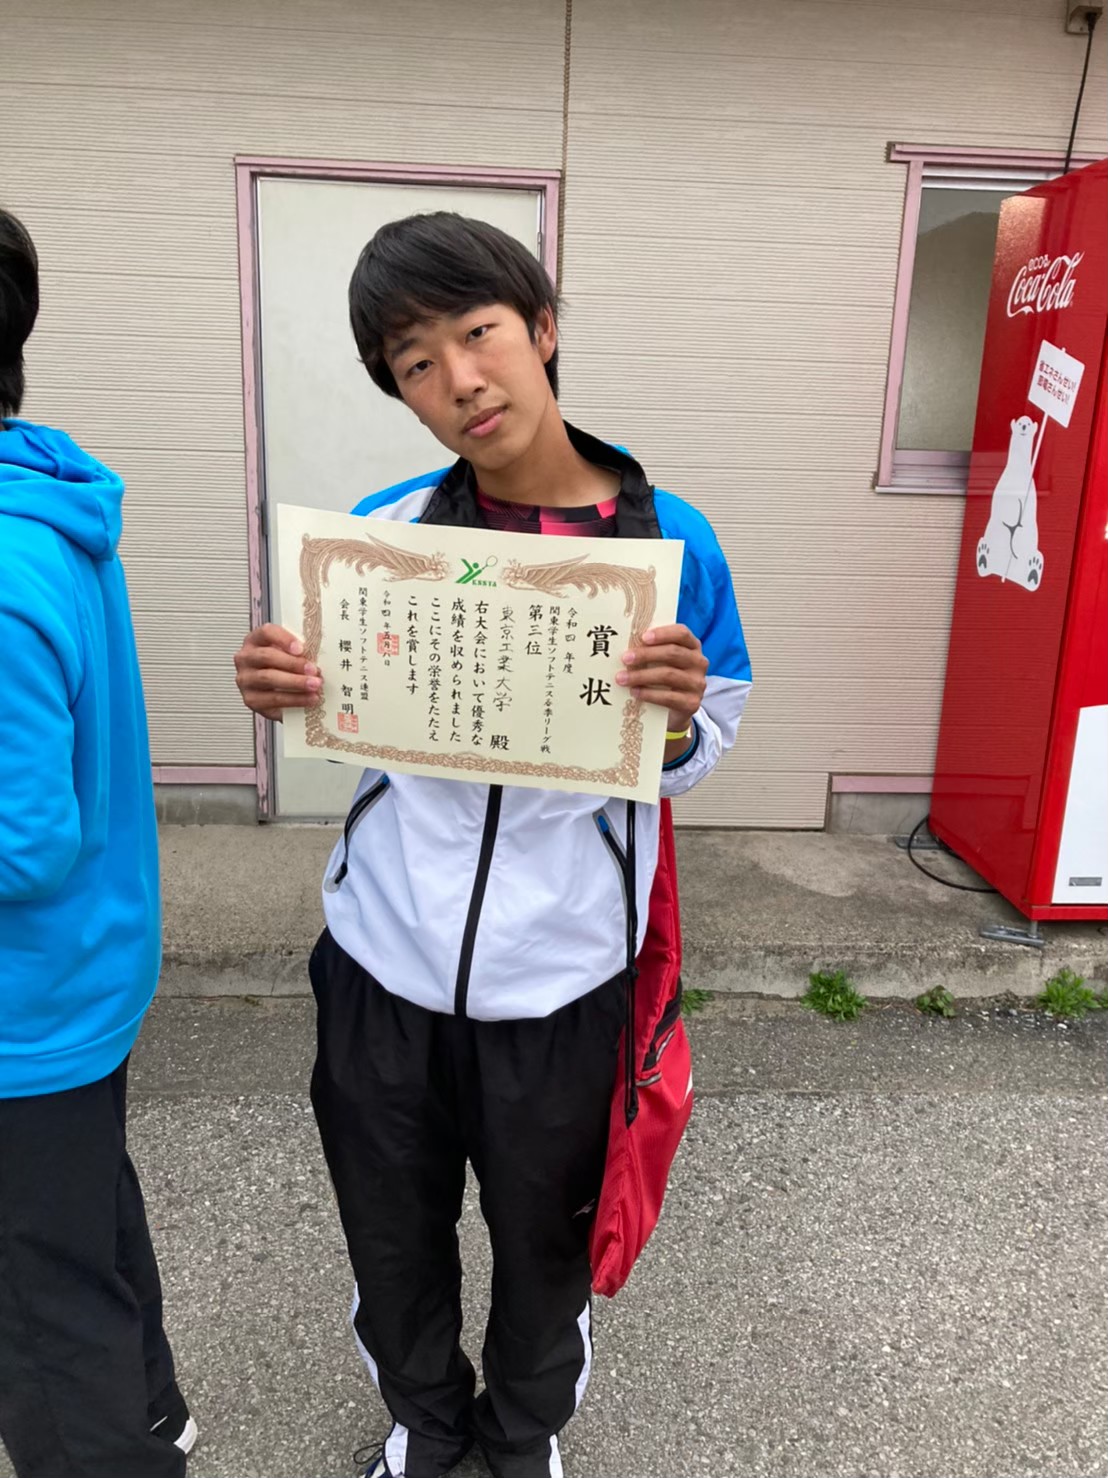 賞状
令和四年度
関東学生ソフトテニス春季リーグ戦
第三位
東京工業大学 殿
右大会において優秀な
成績を収められました
ここにその栄誉をたたえ
これを賞します
令和四年五月六日
関東学生ソフトテニス連盟
会長 櫻井智明
ecoる
Coca-Cola
省エネさんせい!
節電さんせい!